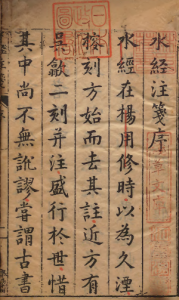 水經注箋序
水經在楊用修時以為久湮
挍刻方始而去其註近方有
吳歙二刻并注盛行於世惜
其中尚不無訛謬嘗謂古書